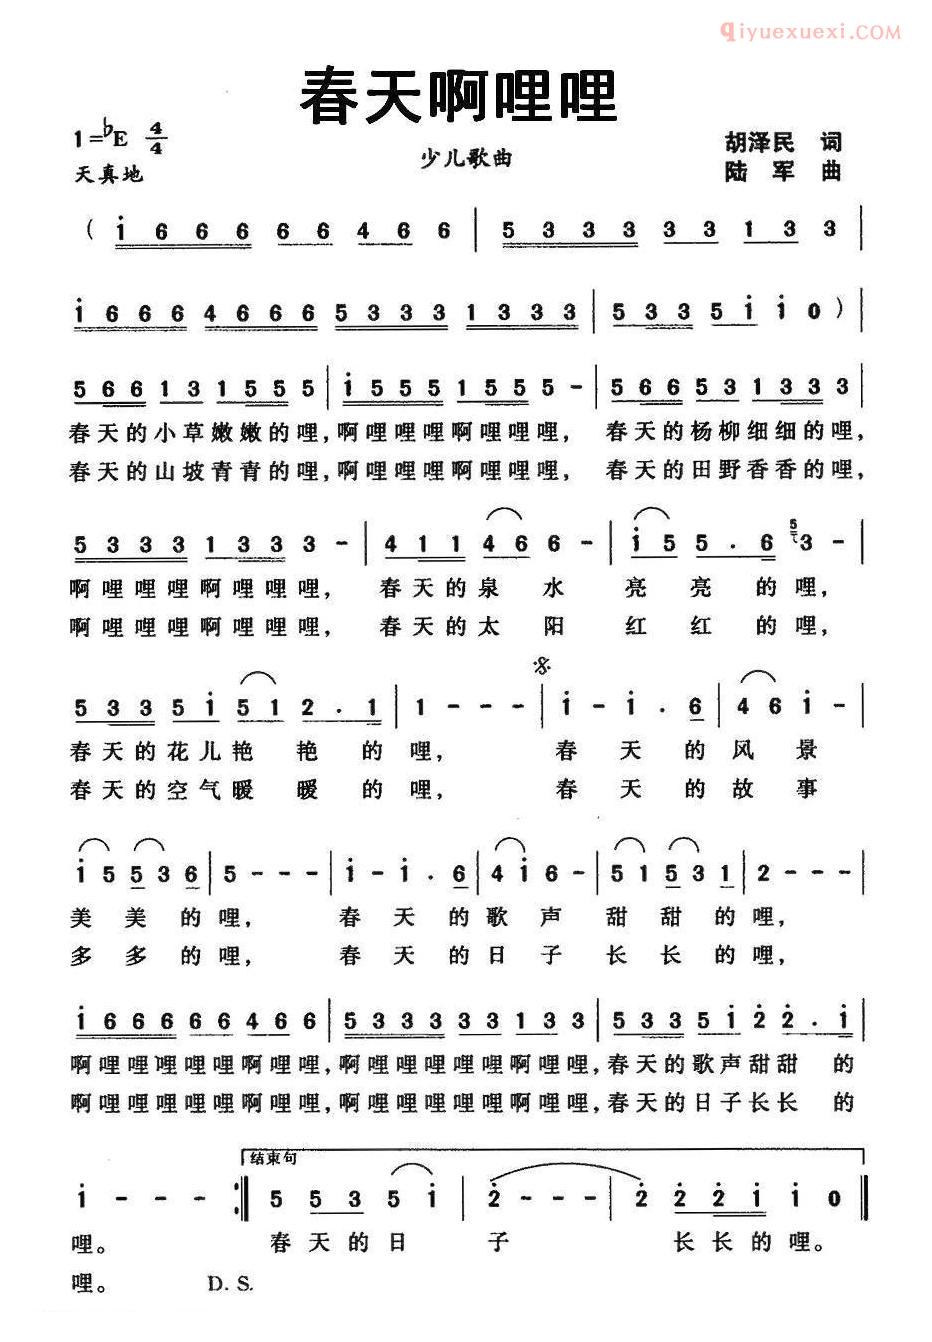 qiyuexuexi.COM
春天啊哩哩
1=♭E 4/4
少儿歌曲
胡泽民 词
天真地
陆军 曲
( i 6 6 6 6 6 4 6 6 | 5 3 3 3 3 3 1 3 3 |
i 6 6 6 4 6 6 6 5 3 3 3 1 3 3 3 | 5 3 3 5 i i 0 ) |
5 6 6 1 3 1 5 5 5 | i 5 5 5 1 5 5 5 - | 5 6 6 5 3 1 3 3 3 |
春天的小草嫩嫩的哩,啊哩哩哩啊哩哩哩, 春天的杨柳细细的哩,
春天的山坡青青的哩,啊哩哩哩啊哩哩哩, 春天的田野香香的哩,
5 3 3 3 1 3 3 3 - | 4 1 1 4 6 6 - | i 5 5 . 6 5 3 - |
啊哩哩哩啊哩哩哩, 春天的泉水亮亮的哩,
啊哩哩哩啊哩哩哩, 春天的太阳红红的哩,
5 3 3 5 i 5 1 2 . 1 | 1 - - - | i - i . 6 | 4 6 i - |
春天的花儿艳艳的哩, 春天的风景
春天的空气暖暖的哩, 春天的故事
i 5 5 3 6 | 5 - - - | i - i . 6 | 4 i 6 - | 5 1 5 3 1 | 2 - - - |
美美的哩, 春天的歌声甜甜的哩,
多多的哩, 春天的日子长长的哩,
i 6 6 6 6 6 4 6 6 | 5 3 3 3 3 3 1 3 3 | 5 3 3 5 i 2 2 . i |
啊哩哩哩哩哩啊哩哩,啊哩哩哩哩哩啊哩哩,春天的歌声甜甜的
啊哩哩哩哩哩啊哩哩,啊哩哩哩哩哩啊哩哩,春天的日子长长的
结束句
i - - - :| 5 5 3 5 i | 2 - - - | 2 2 2 i i 0 ‖
哩。 春天的日子长长的哩。
哩。 D.S.